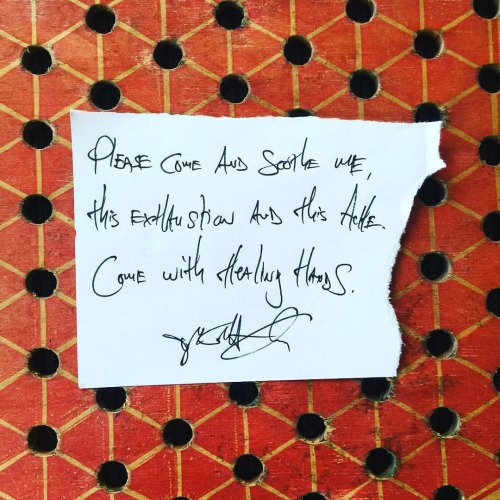 Please come and soothe me,
this exhaustion and this ache.
Come with healing hands.